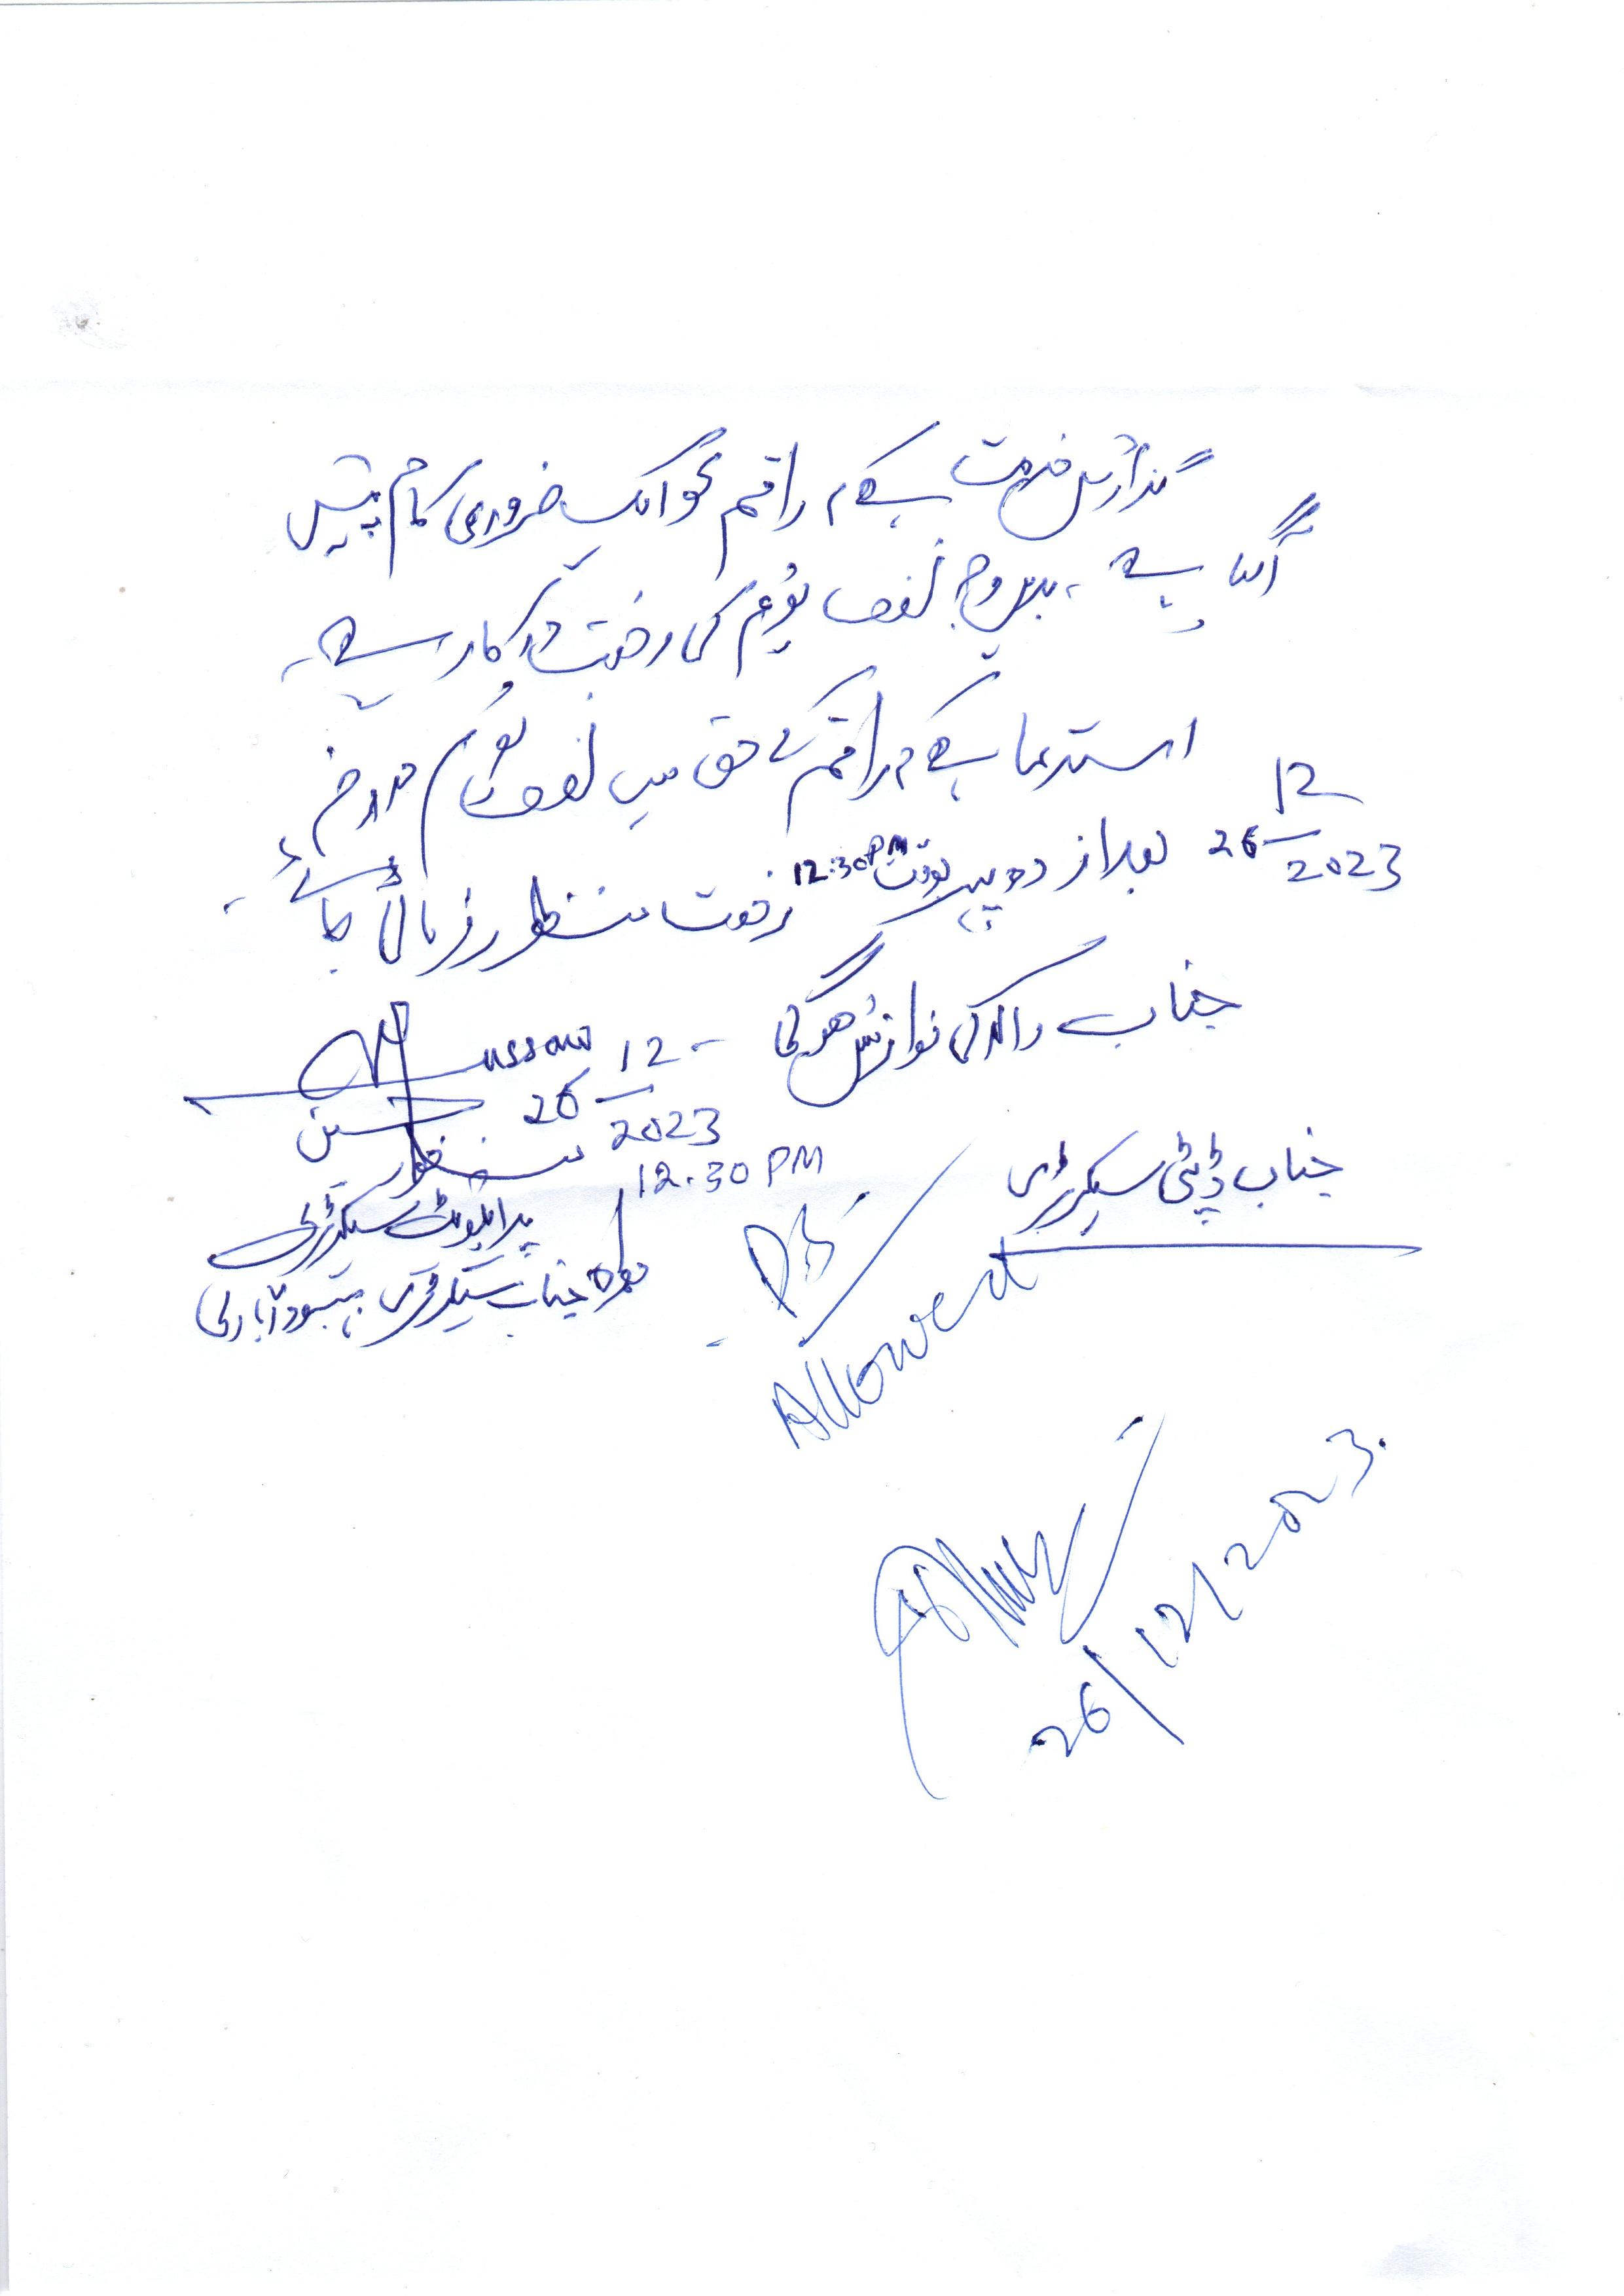 گذارش خدمت ہے کہ راقم کو ایک ضروری کام پیش
آگیا ہے ۔ بدیں وجہ نصف یوم کی رخصت درکار ہے ۔
استدعا ہے کہ راقم کے حق میں نصف یوم مورخہ
26 12/2023 بعد از دوپہر بوقت 12:30 PM رخصت منظور فرمائی جائے ۔
جناب والا کی نوازش ہوگی ۔
Hussain
26 12/2023
12.30 PM
منظور حسین
پرائیویٹ سیکرٹری
ہمراہ جناب سیکرٹری بہبود آبادی
جناب ڈپٹی سیکرٹری
Allowed
26/12/2023.